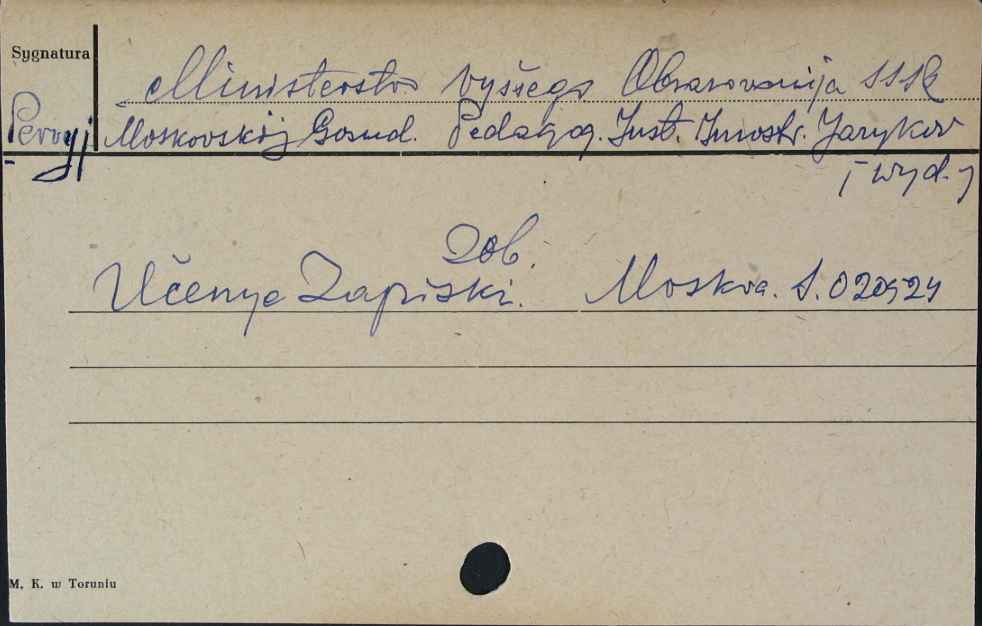 Sygnatura
Ministerstvo Vysšego Obrazovanija SSSR
Pervyj Moskovskij Gosud. Pedagog. Inst. Inostr. Jazykov
[wyd.]
Zob.
Učenye Zapiski. Moskva. S. 020924
M. K. w Toruniu